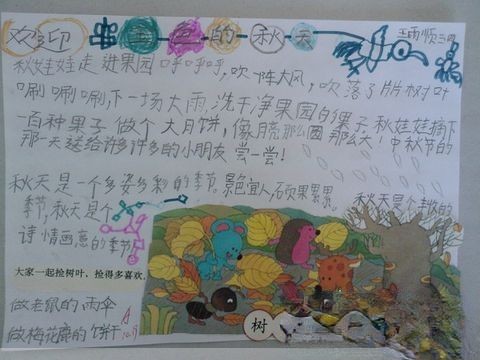 欢迎 金色的秋天
秋娃娃走进果园呼呼呼,吹一阵大风,吹落了片片树叶
唰唰唰,下一场大雨,洗干净果园的果子,秋娃娃摘下
一百种果子做个大月饼,像月亮那么圆那么大!中秋节的
那一天送给许多许多的小朋友尝一尝!
秋天是一个多姿多彩的季节。景色宜人,硕果累累。
秋天是个丰收的
季节,秋天是个
诗情画意的季节
大家一起抢树叶,抢得多喜欢.
做老鼠的雨伞
做梅花鹿的饼干
树